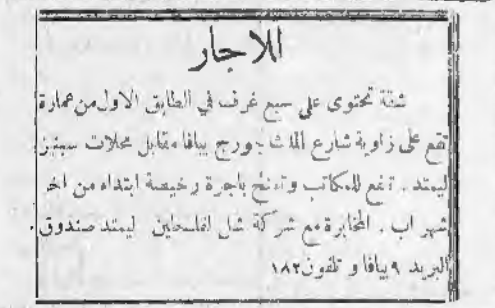 للاجار
شقة تحتوى على سبع غرف في الطابق الاول من عمارة
تقع على زاوية شارع الملك جورج بيافا مقابل محلات سبينز
ليمتد. تنفع للمكاتب وتدفع باجرة رخيصة ابتداء من اخر
شهر اب. المخابرة مع شركة شل لفلسطين ليمتد صندوق
البريد ٩ بيافا و تلفون ١٨٢